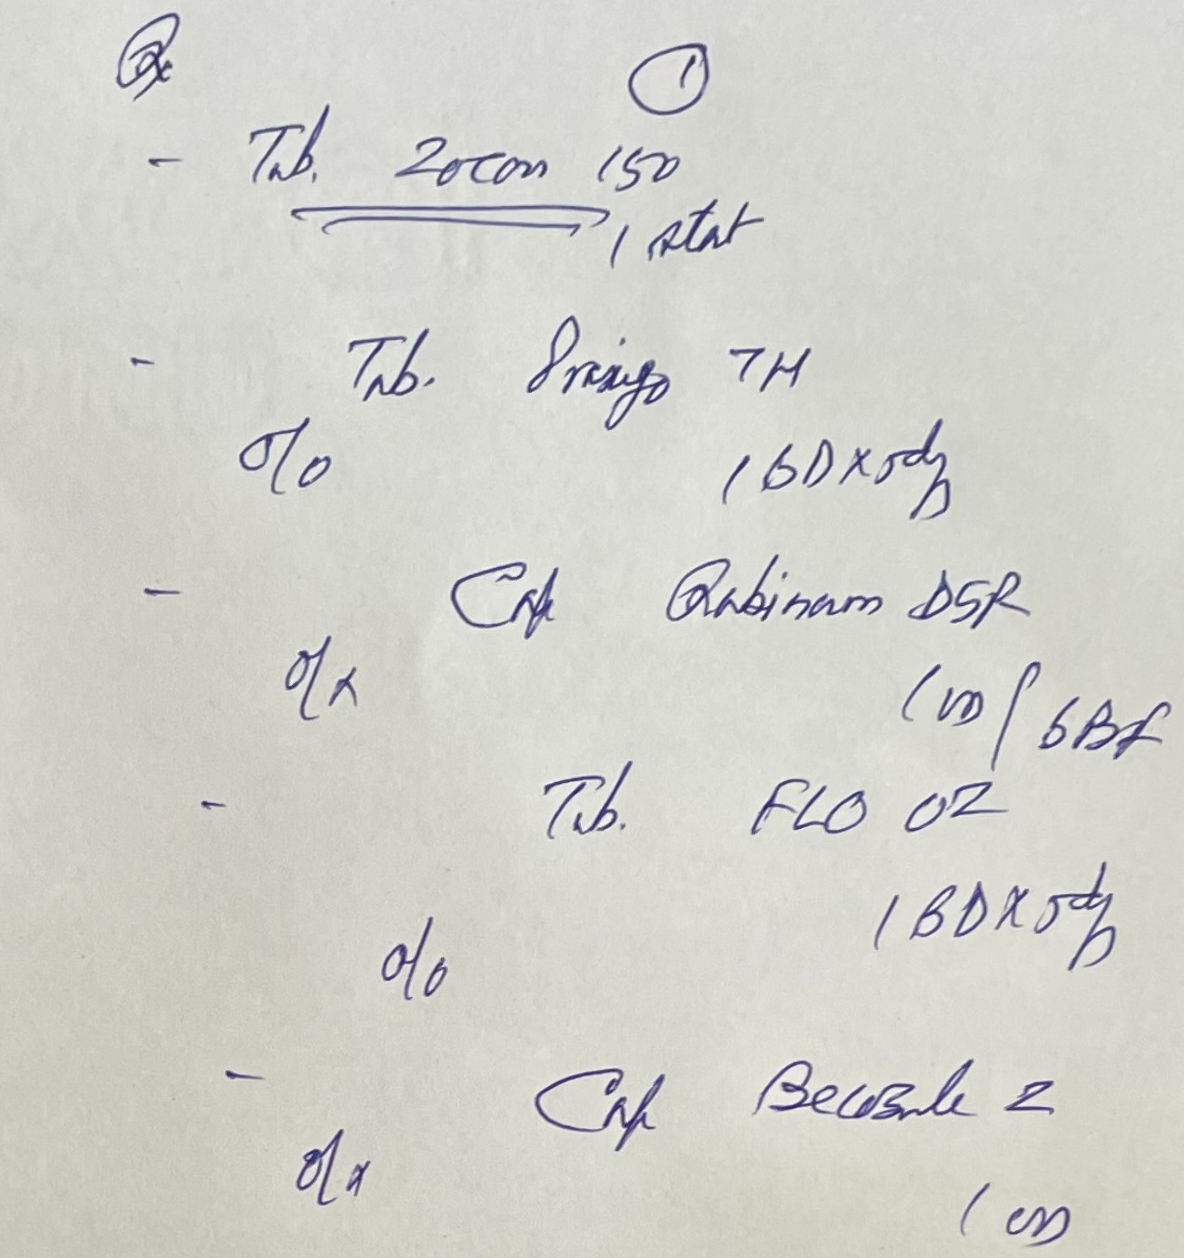 Rx
①
- Tab. Zocon 150
1 stat
- Tab. TH
o/o
1 BD x 5dys
- Cap Rabinam DSR
o/x
1 OD / BBF
- Tab. FLO OZ
1 BD x 5dys
o/o
- Cap Becozule Z
o/x
1 OD